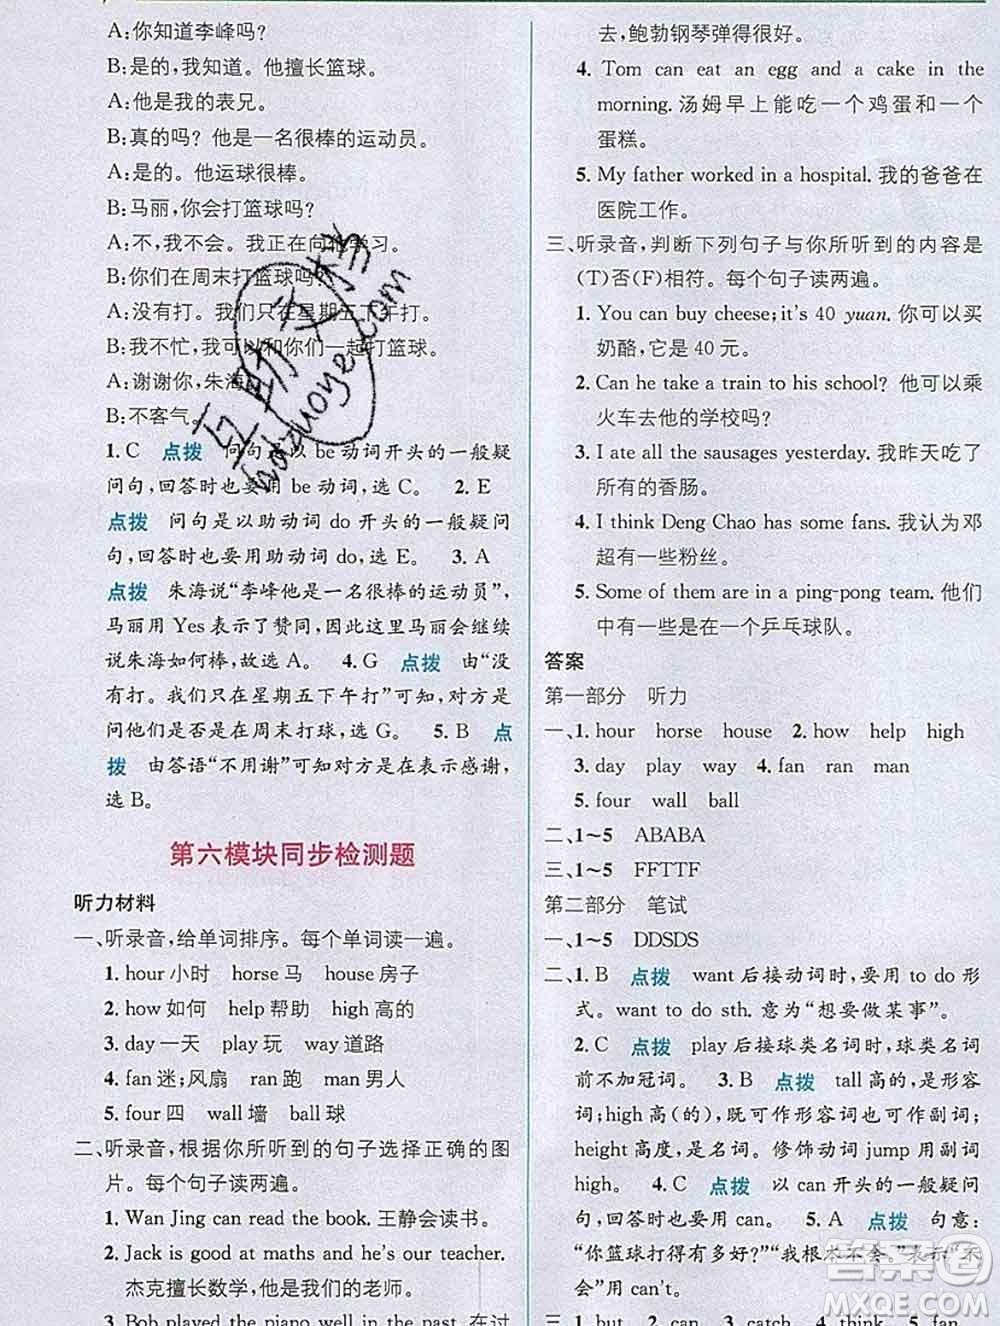 A:你知道李峰吗?
B:是的,我知道。他擅长篮球。
A:他是我的表兄。
B:真的吗?他是一名很棒的运动员。
A:是的。他运球很棒。
B:马丽,你会打篮球吗?
A:不,我不会。我正在向他学习。
B:你们在周末打篮球吗?
A:没有打。我们只在星期五下午打。
B:我不忙,我可以和你们一起打篮球。
A:谢谢你,朱海
B:不客气。
1. C 点拨 问句是以 be 动词开头的一般疑
问句,回答时也要用 be 动词,选 C。 2. E
点拨 问句是以助动词 do 开头的一般疑问
句,回答时也要用助动词 do,选 E。 3. A
点拨 朱海说“李峰他是一名很棒的运动员”,
马丽用 Yes 表示了赞同,因此这里马丽会继续
说朱海如何棒,故选 A。 4. G 点拨 由“没
有打。我们只在星期五下午打”可知,对方是
问他们是否是在周末打球,选 G。 5. B 点
拨 由答语“不用谢”可知对方是在表示感谢,
选 B。
第六模块同步检测题
听力材料
一、听录音,给单词排序。每个单词读一遍。
1. hour 小时 horse 马 house 房子
2. how 如何 help 帮助 high 高的
3. day 一天 play 玩 way 道路
4. fan 迷;风扇 ran 跑 man 男人
5. four 四 wall 墙 ball 球
二、听录音,根据你所听到的句子选择正确的图
片。每个句子读两遍。
1. Wan Jing can read the book. 王静会读书。
2. Jack is good at maths and he's our teacher.
杰克擅长数学,他是我们的老师。
3. Bob played the piano well in the past. 在过
去,鲍勃钢琴弹得很好。
4. Tom can eat an egg and a cake in the
morning. 汤姆早上能吃一个鸡蛋和一个
蛋糕。
5. My father worked in a hospital. 我的爸爸在
医院工作。
三、听录音,判断下列句子与你所听到的内容是
(T)否(F)相符。每个句子读两遍。
1. You can buy cheese;it's 40 yuan. 你可以买
奶酪,它是 40 元。
2. Can he take a train to his school? 他可以乘
火车去他的学校吗?
3. I ate all the sausages yesterday. 我昨天吃了
所有的香肠。
4. I think Deng Chao has some fans. 我认为邓
超有一些粉丝。
5. Some of them are in a ping-pong team. 他们
中有一些是在一个乒乓球队。
答案
第一部分 听力
一、1. hour horse house 2. how help high
3. day play way 4. fan ran man
5. four wall ball
二、1~5 ABABA
三、1~5 FFTTF
第二部分 笔试
一、1~5 DDSDS
二、1. B 点拨 want 后接动词时,要用 to do 形
式。want to do sth. 意为“想要做某事”。
2. C 点拨 play 后接球类名词时,球类名词
前不加冠词。 3. B 点拨 tall 高的,是形容
词;high 高的(地),既可作形容词也可作副词;
height 高度,是名词。修饰动词 jump 用副词
high。 4. C 点拨 以 can 开头的一般疑问
句,回答时也要用 can。 5. A 点拨 句意:
“你篮球打得有多好?”“我根本不会。”表示“不
会”用 can't.
三、1. but 2. can 3. catch 4. think 5. fan
互助文档
hdzuoye.com
答案
MXQE.COM